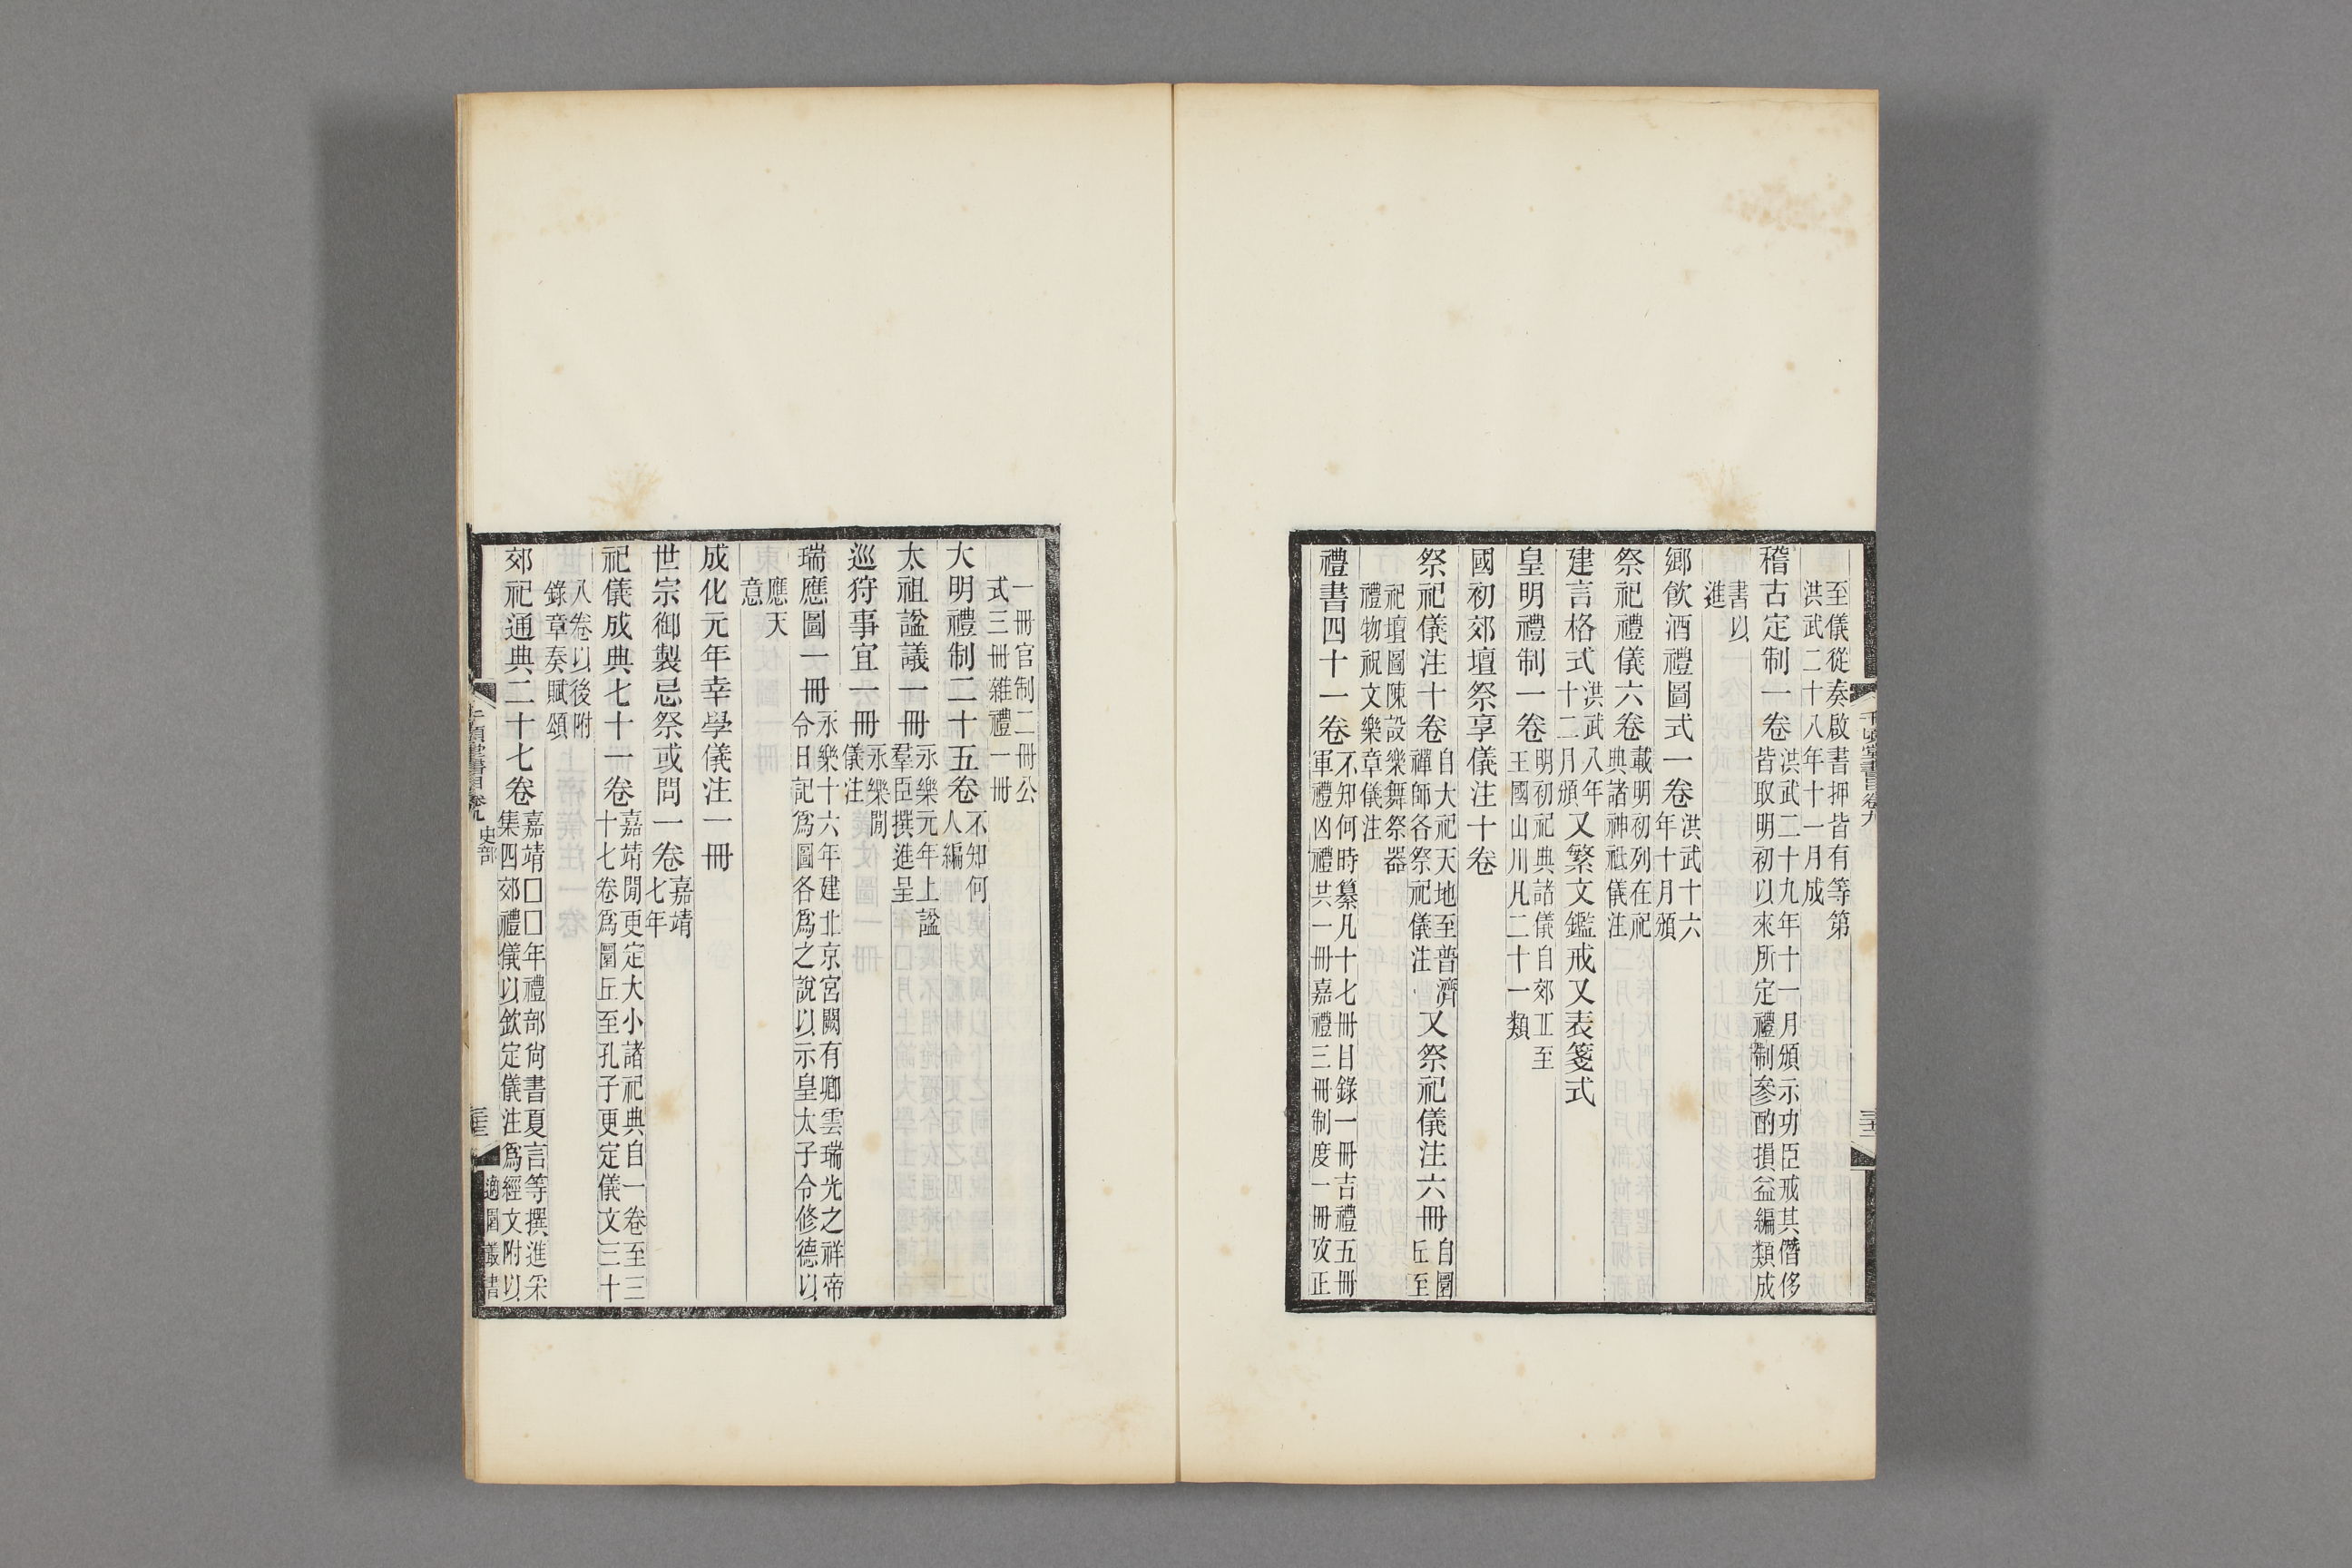 至儀從奏啟書押皆有等第
洪武二十八年十一月成
稽古定制一卷洪武二十九年十一月頒示功臣戒其僭侈
皆取明初以來所定禮制參酌損益編類成
書以
進
鄉飲酒禮圖式一卷洪武十六
年十月頒
祭祀禮儀六卷載明初列在祀
典諸神祗儀注
建言格式洪武八年
十二月頒又繁文鑑戒又表箋式
皇明禮制一卷明初祀典諸儀自郊丕至
王國山川凡二十一類
國初郊壇祭享儀注十卷
祭祀儀注十卷自大祀天地至普濟
禪師各祭祀儀注又祭祀儀注六冊自圜
丘至
祀壇圖陳設樂舞祭器
禮物祝文樂章儀注
禮書四十一卷不知何時纂凡十七冊目錄一冊吉禮五冊
軍禮凶禮共一冊嘉禮三冊制度一冊攷正
一冊官制二冊公
式三冊雜禮一冊
大明禮制二十五卷不知何
人編
太祖謚議一冊永樂元年上謚
羣臣撰進呈
巡狩事宜一冊永樂閒
儀注
瑞應圖一冊永樂十六年建北京宮闕有卿雲瑞光之祥帝
令日記爲圖各爲之說以示皇太子令修德以
應天
意
成化元年幸學儀注一冊
世宗御製忌祭或問一卷嘉靖
七年
祀儀成典七十一卷嘉靖閒更定大小諸祀典自一卷至三
十七卷爲圜丘至孔子更定儀文三十
八卷以後附
錄章奏賦頌
郊祀通典二十七卷嘉靖□□年禮部尙書夏言等撰進采
集四郊禮儀以欽定儀注爲經文附以
千頃堂書目卷九
史部
適園叢書